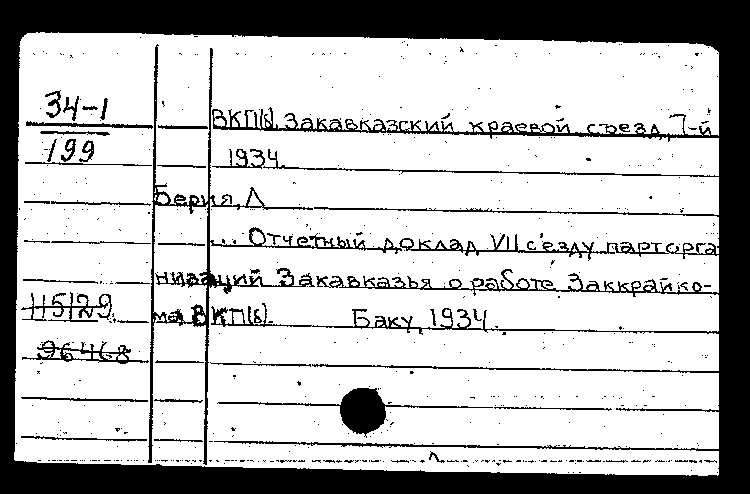 34-1
199
ВКП(б). Закавказский краевой съезд, 7-й
1934.
Берия, Л
... Отчетный доклад VII с'езду парторга
низаций Закавказья о работе Заккрайко-
ма ВКП(б). Баку, 1934.
115129
96468